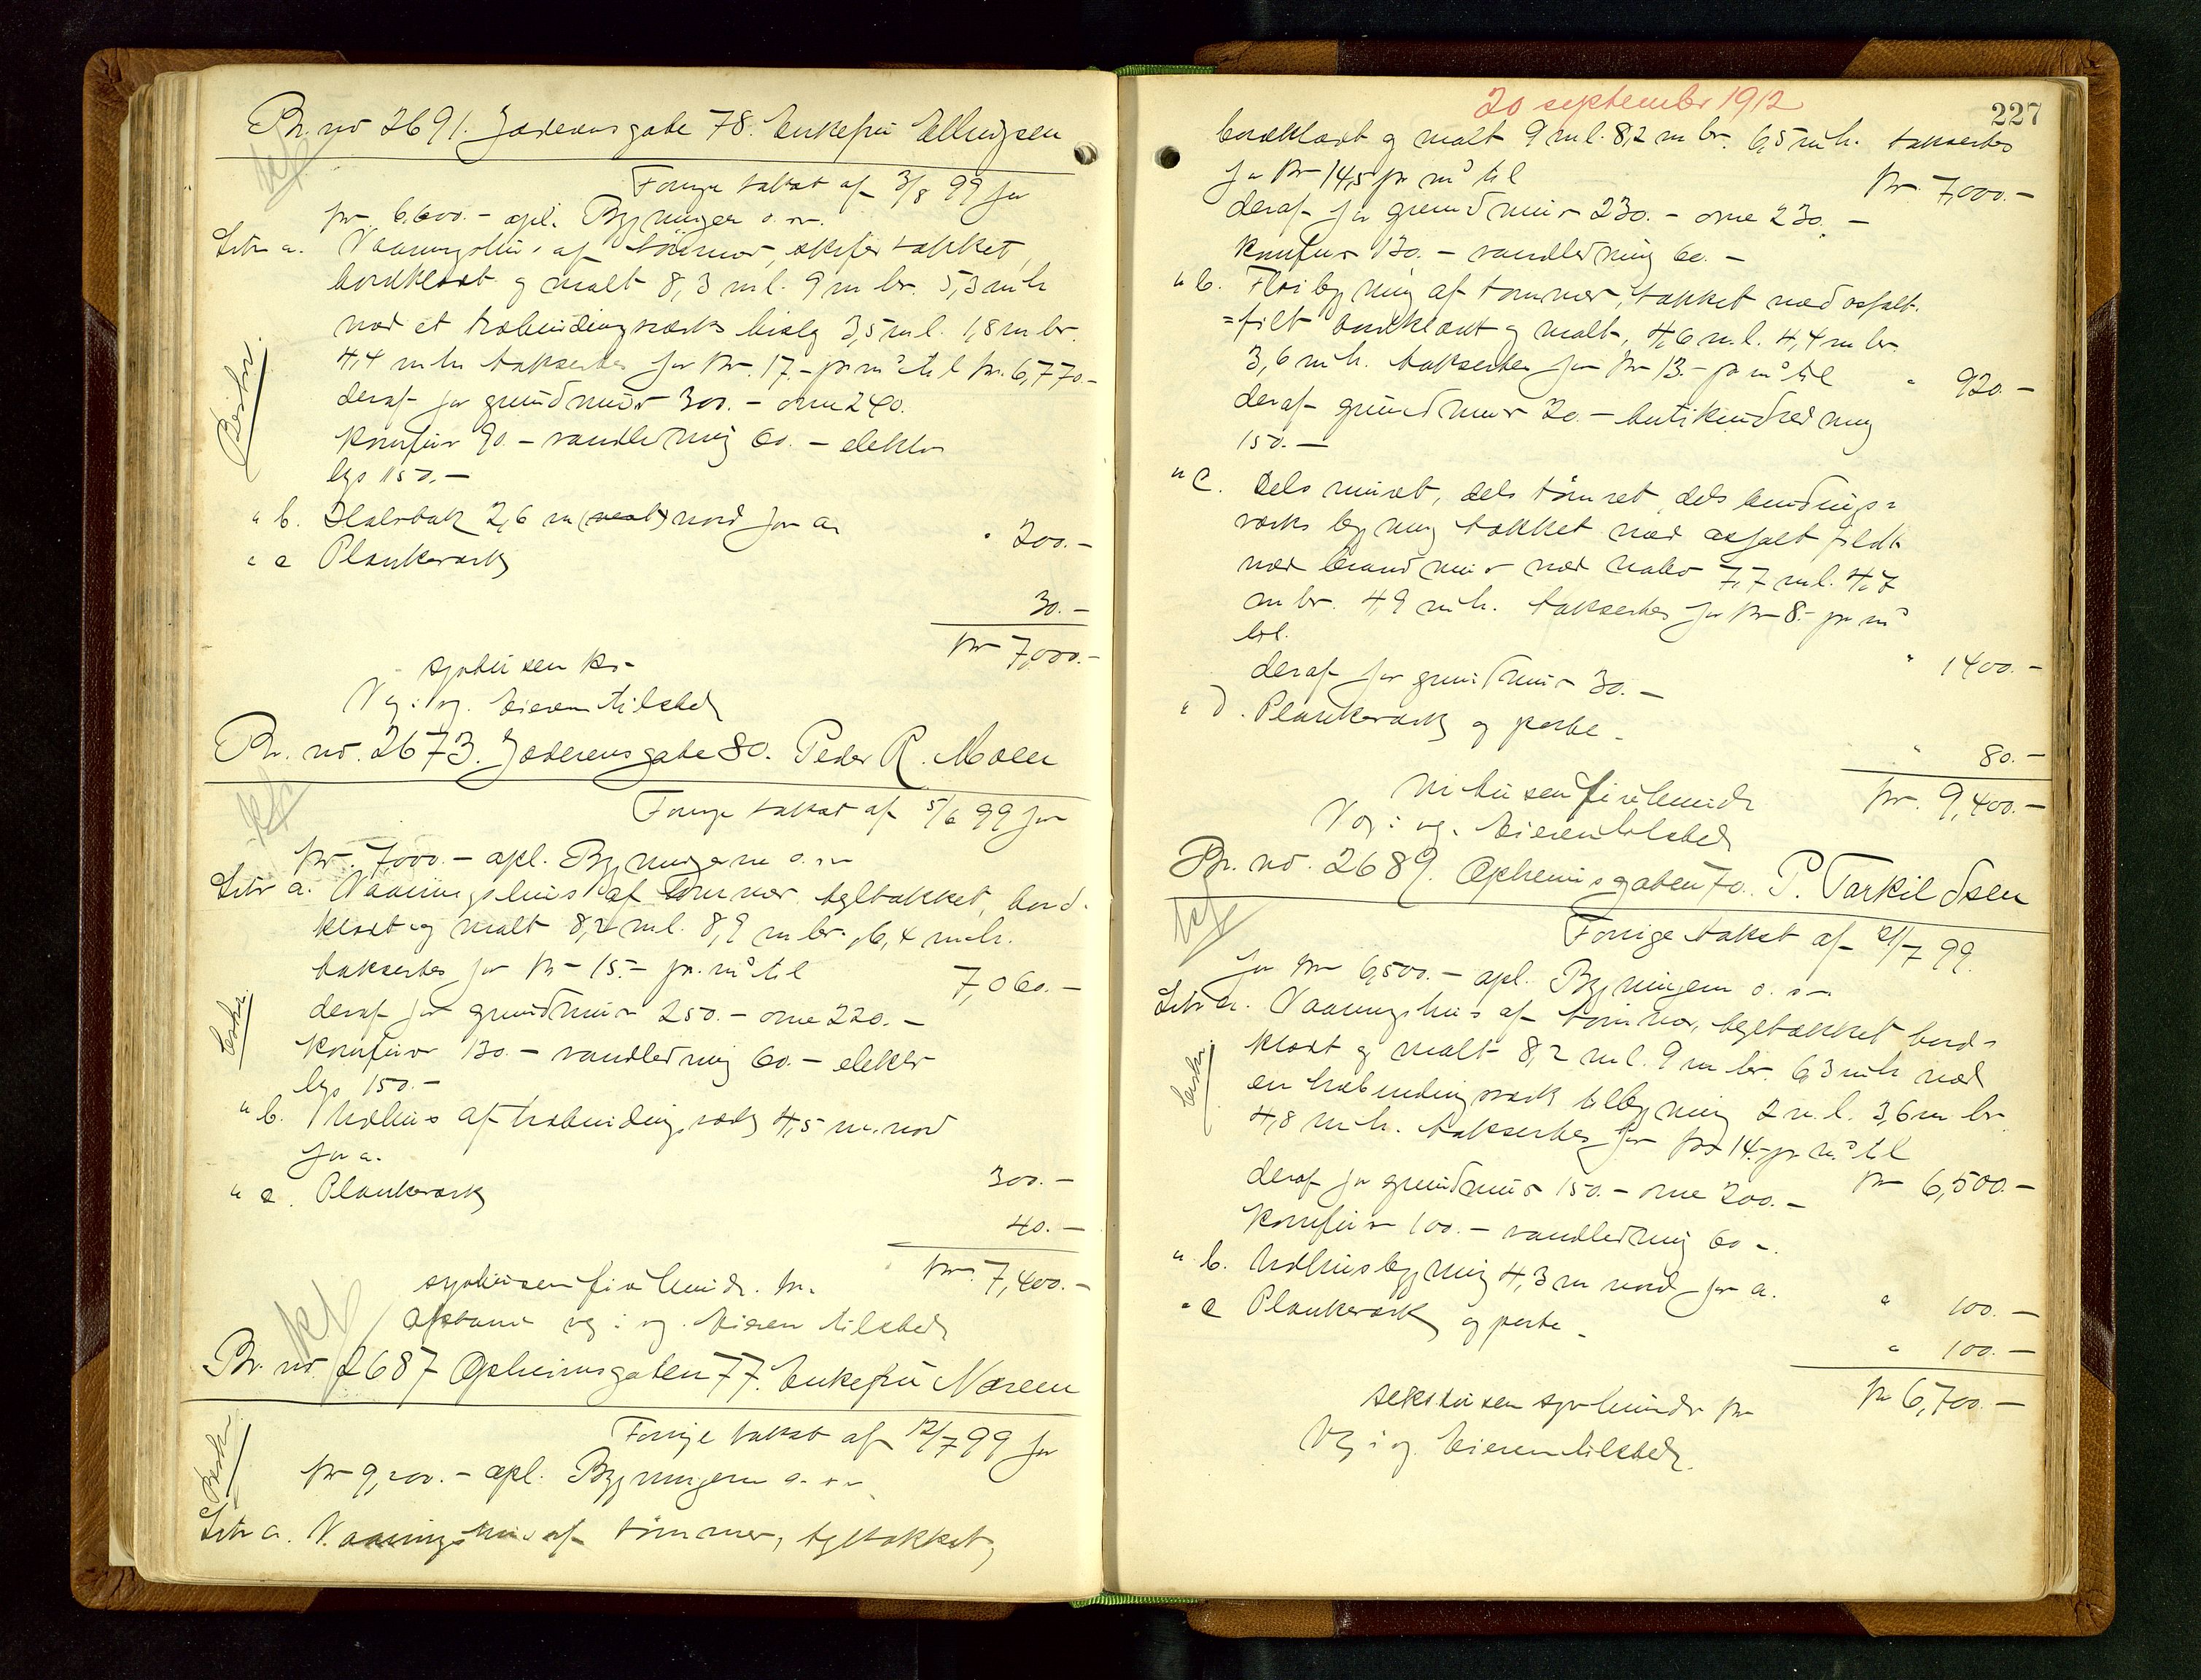 Br. no 2691. Jæderensgade 78. Enkefru Ellingsen
Forrige takst af 3/8 99 for
kr. 6.600.- opl. Bygningen o. s. v.
Litr a. Vaaningshus af tömmer, skifertækket,
bordklædt og malt 8,3 m l. 9 m br. 5,3 m h
med et træbindingsværks bislag 3,5 m l. 1,8 m br.
4,4 m h takseres for kr. 17.- pr m³ til kr. 6,770.-
deraf for grundmur 300.- ovne 240.
komfur 90.- vandledning 60.- elektr
lys 150.-
" b. 2,6 m (vest) nord for a
" 200.-
" c Plankeværk
30.-
kr 7,000.-
syvtusen kr.-
V og: og. Eieren tilsted
Br. no. 2673. Jæderensgade 80. Peder R. Moen
Forrige takst af 5/6 99 for
kr. 7000.- opl. Bygningerne o. s. v.
Litr a. Vaaningshus af tømmer tegltækket, bord-
klædt og malt 8,2 m l. 8,9 m br. 6,4 m h.
takseres for kr 15.- pr. m³ til
7,060.-
deraf for grundmur 250.- ovne 220.-
komfur 130.- vandledning 60.- elektr
lys 150.-
" b. Udhus af træbindingsværk 4,5 m. nord
for a.
300.-
" c. Plankeværk
40.-
kr. 7,400.-
syvtusenfirehundr. kr.
og: og. Eieren tilsted
Br. no 2687 Opheimsgaten 77. Enkefru Næreen
Forrige takst af 12/7 99 for
kr 9,200.- opl. Bygningerne o. s. v.
Litr a. Vaaningshus af tömmer, tegltækket,
Beskr.
Beskr.
Beskr.
20 september 1912
227
bordklædt og malt 9 m l. 8,2 m br. 6,5 m h. takseres
for kr 14,5 pr m³ til
kr. 7,000.-
deraf for grundmur 230.- ovne 230.-
komfur 130.- vandledning 60.-
" b. Fløibygning af tømmer, tækket med asfalt-
=filt bordklædt og malt, 4,6 m l. 4,4 m br.
3,6 m h. takseres for kr 13.- pr m³ til
" 920.-
deraf grundmur 20.- butikindredning
150.-
" c. Dels muret, dels tömret, dels bindings=
værks bygning tækket med asfalt fildt
med brandmur mod nabo 7,7 m l. 4,7
m br. 4,9 m h. takseres for kr 8.- pr m³
til.
" 1400.-
deraf for grundmur 30.-
" d. Plankeværk og porte.-
" 80.-
kr. 9,400.-
nitusenfirehundr
V og: og. Eieren tilsted
Br. no. 2689. Opheimsgaten 70. P. Tarkildsen
Forrige takst af 21/7 99.
for kr 6,500.- opl. Bygningerne o. s. v.
Litr a. Vaaningshus af tömmer, tegltækket bord-
klædt og malt 8,2 m l. 9 m br. 6,3 m h med
en træbindingsværk tilbygning 2 m l. 3,6 m br.
4,8 m h. takseres for kr 14.- pr m³ til
kr 6,500.-
deraf for grundmur 150.- ovne 200.-
komfur 100.- vandledning 60.-
" b. Udhusbygning 4,3 m nord for a.
" 100.-
" c Plankeværk og porte.-
" 100.-
kr 6,700.-
sekstusen syvhundr kr
V og: og. Eieren tilsted
Beskr.